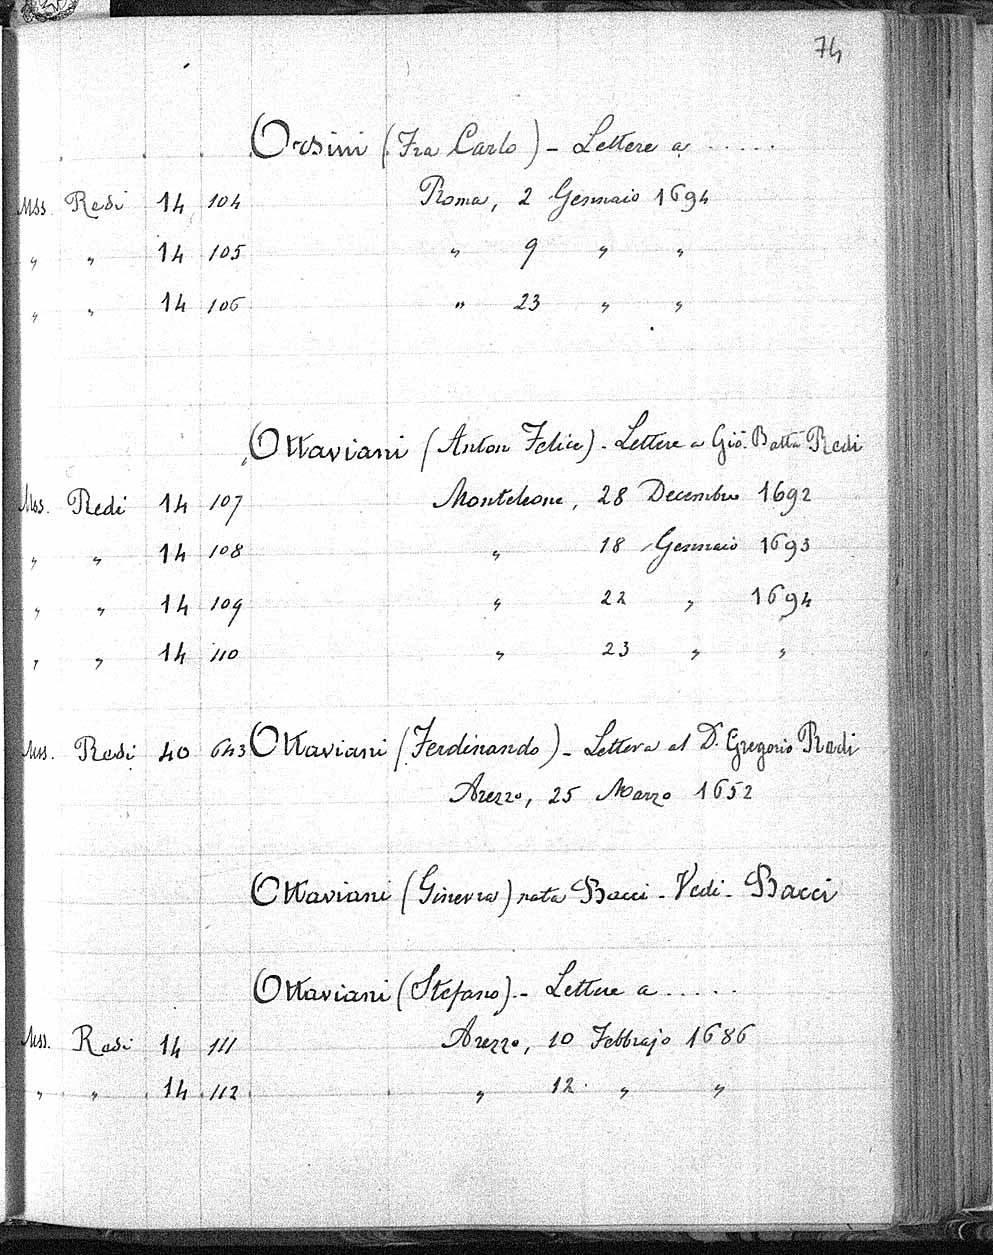 74
Orsini (Fra Carlo) - Lettere a .....
Mss. Redi 14 104 Roma, 2 Gennaio 1694
" " 14 105 " 9 " "
" " 14 106 " 23 " "
Ottaviani (Anton Felice) - Lettere a Gio. Batta Redi
Mss. Redi 14 107 Monteleone, 28 Decembre 1692
" " 14 108 " 18 Gennaio 1693
" " 14 109 " 22 " 1694
" " 14 110 " 23 " "
Mss. Redi 40 643 Ottaviani (Ferdinando) - Lettera al D. Gregorio Redi
Arezzo, 25 Marzo 1652
Ottaviani (Ginevra) nata Bacci - Vedi - Bacci
Ottaviani (Stefano) - Lettere a .....
Mss. Redi 14 111 Arezzo, 10 Febbrajo 1686
" " 14 112 " 12 " "